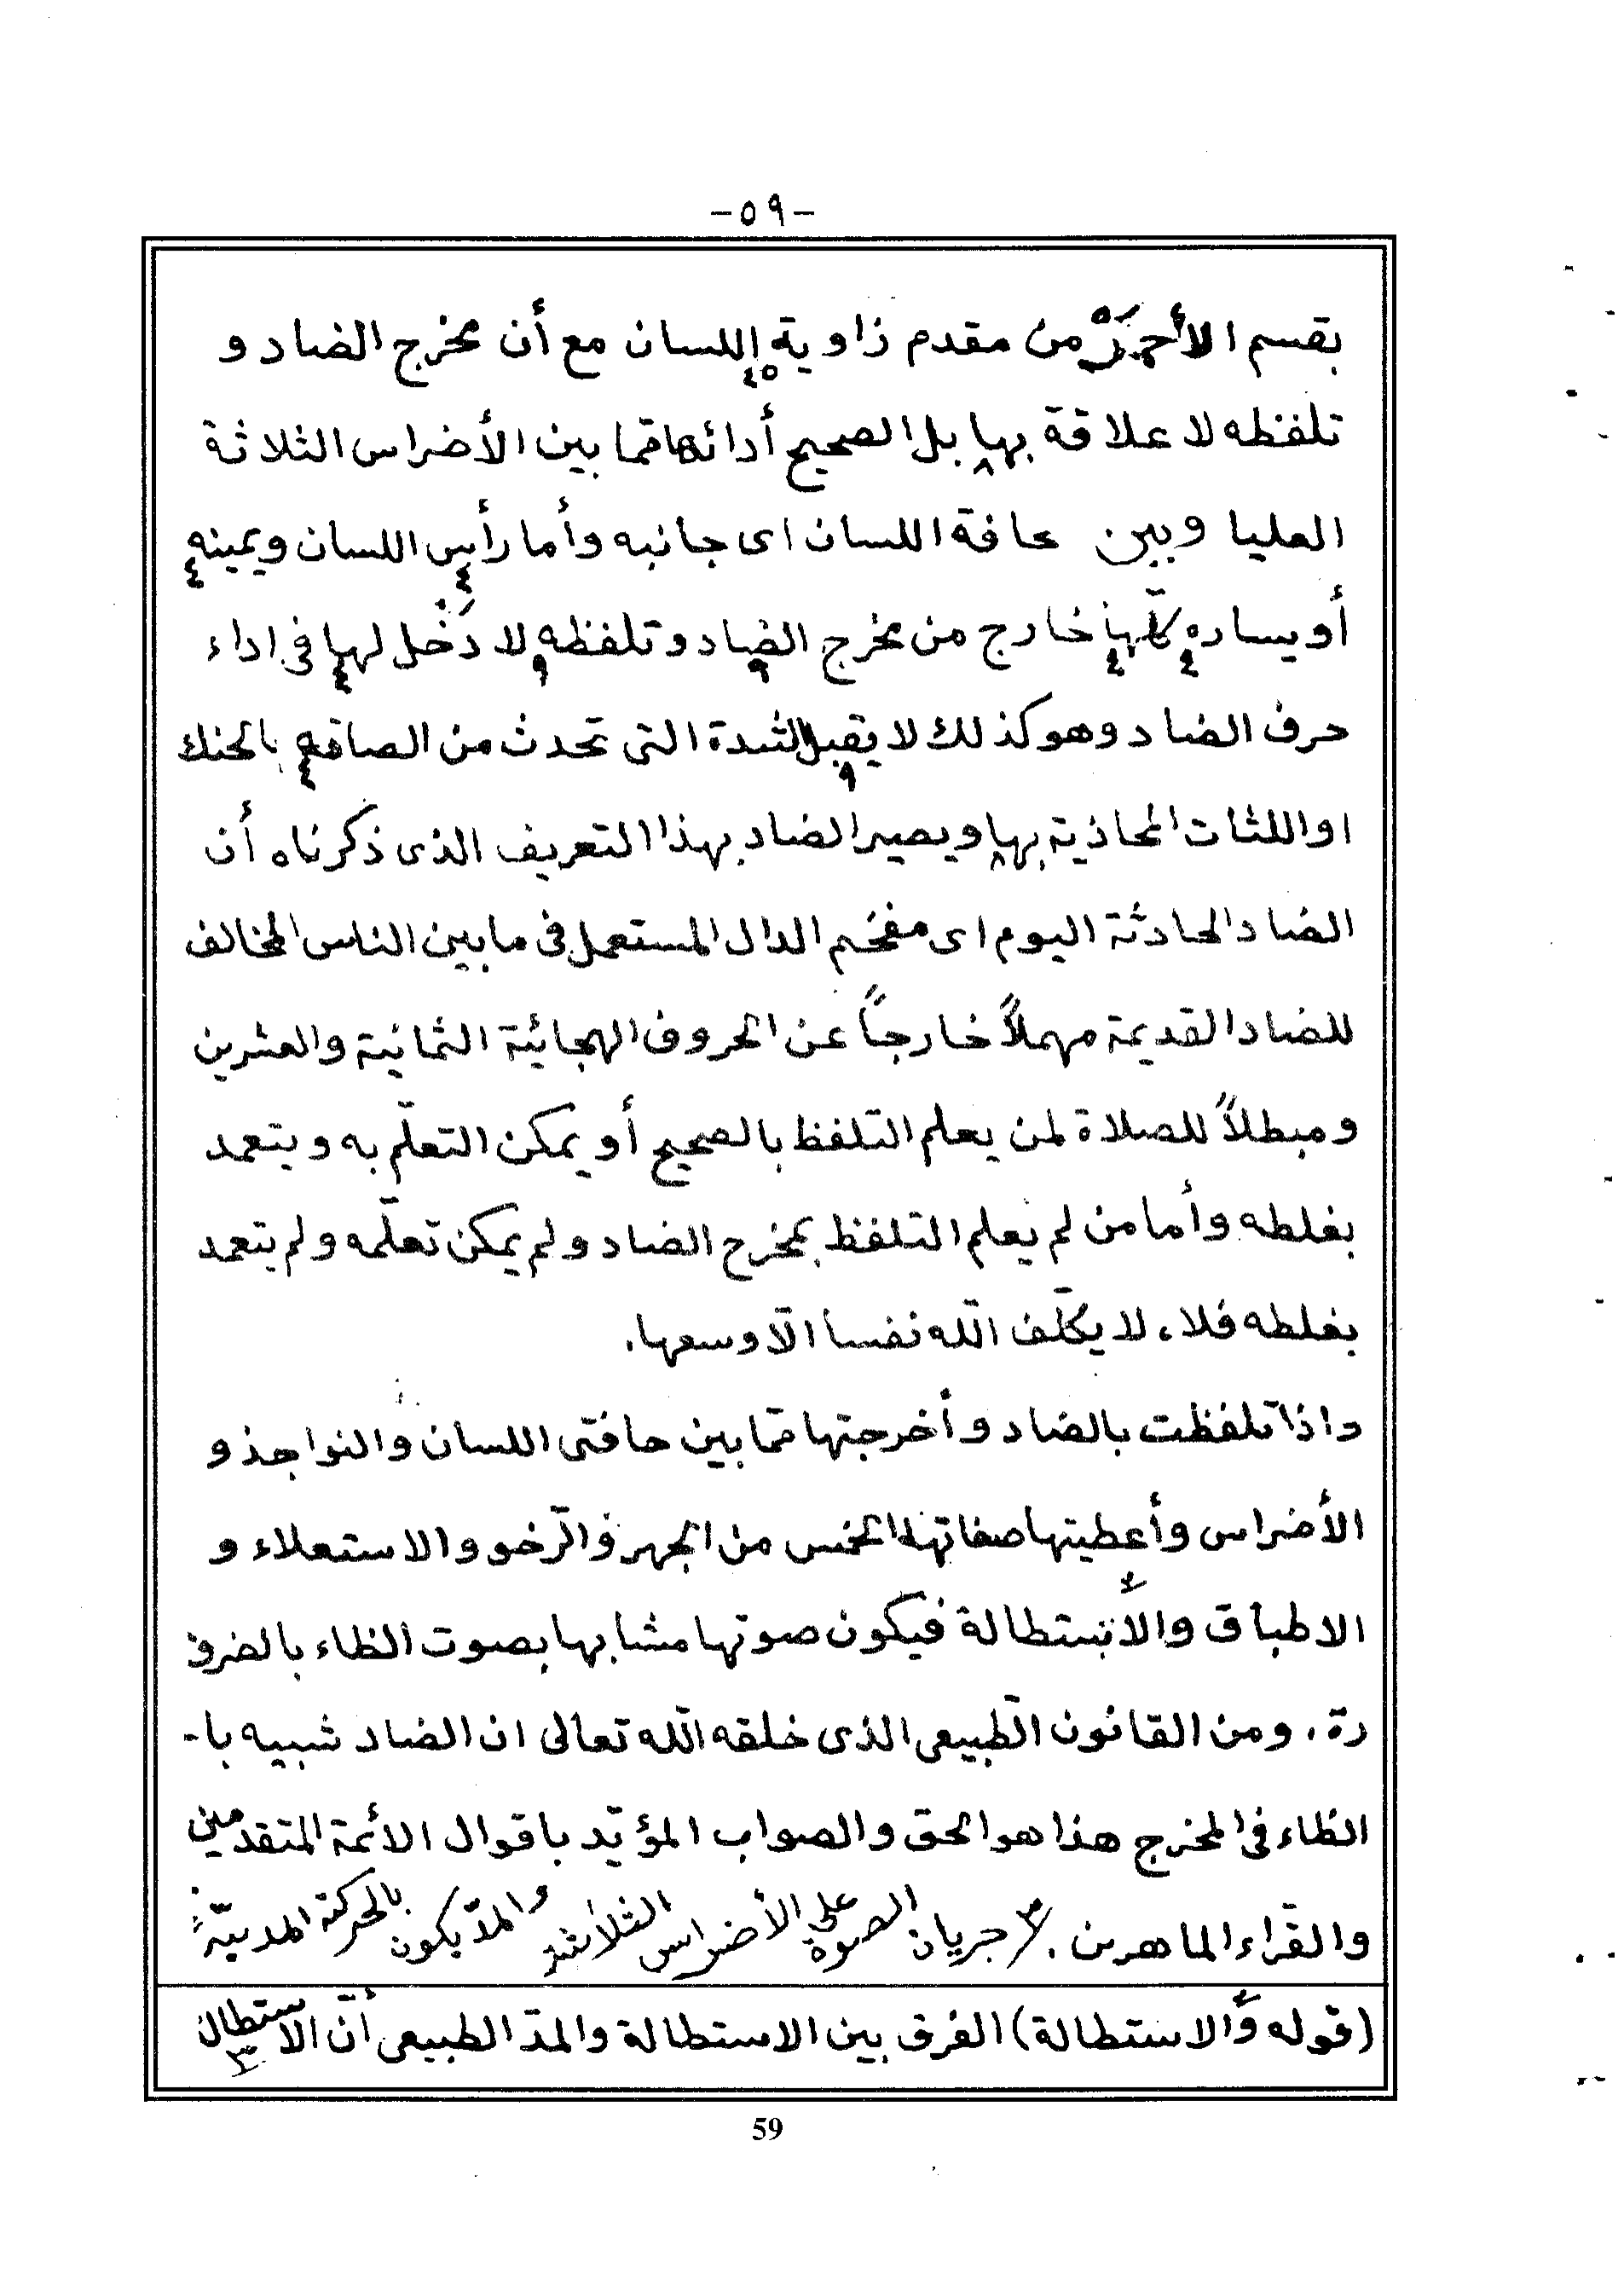 -٥٩-
بقسم الأحمر من مقدم زاوية اللسان مع أن مخرج الضاد و
تلفظه لا علاقة بها بل الصحيح أدائها مما بين الأضراس الثلاثة
العليا وبين حافة اللسان اى جانبه وأما رأس اللسان ويمينه
أو يساره كلّها خارج من مخرج الضاد وتلفظه لا دَخْل لها فى اداء
حرف الضاد وهو كذلك لا يقبل الشدة التى تحدث من الصاقه بالحنك
او اللثات المحاذية بها ويصير الضاد بهذا التعريف الذى ذكرناه أن
الضاد الحادثة اليوم اى مفخم الدال المستعمل فى ما بين الناس المخالف
للضاد القديمة مهملاً خارجاً عن الحروف الهجائية الثمانية والعشرين
ومبطلاً للصلاة لمن يعلم التلفظ بالصحيح أو يمكن التعلّم به ويتعمد
بغلطه وأما من لم يعلم التلفظ بمخرج الضاد ولم يمكن تعلّمه ولم يتعمد
بغلطه فلا، لا يكلّف اللّه نفسا الّا وسعها.
واذا تلفظت بالضاد وأخرجتها ممّا بين حافتى اللسان والنواجذ و
الأضراس وأعطيتها صفاتها الخمس من الجهر والرّخو والاستعلاء و
الاطباق والاستطالة فيكون صوتها مشابها بصوت الظاء بالضرو
رة. ومن القانون الطّبيعى الذى خلقه اللّه تعالى ان الضاد شبيه با-
الظاء فى المخرج هذا هو الحق والصواب المؤيّد باقوال الأئمة المتقدمين
والقرّاء الماهرين. ٣ جريان الصوة على الأضراس الثلاثة والمدّ يكون بالحركة المدنيّة
(قوله والاستطالة) الفرق بين الاستطالة والمدّ الطبيعى أنّ الاستطالة ٣
59